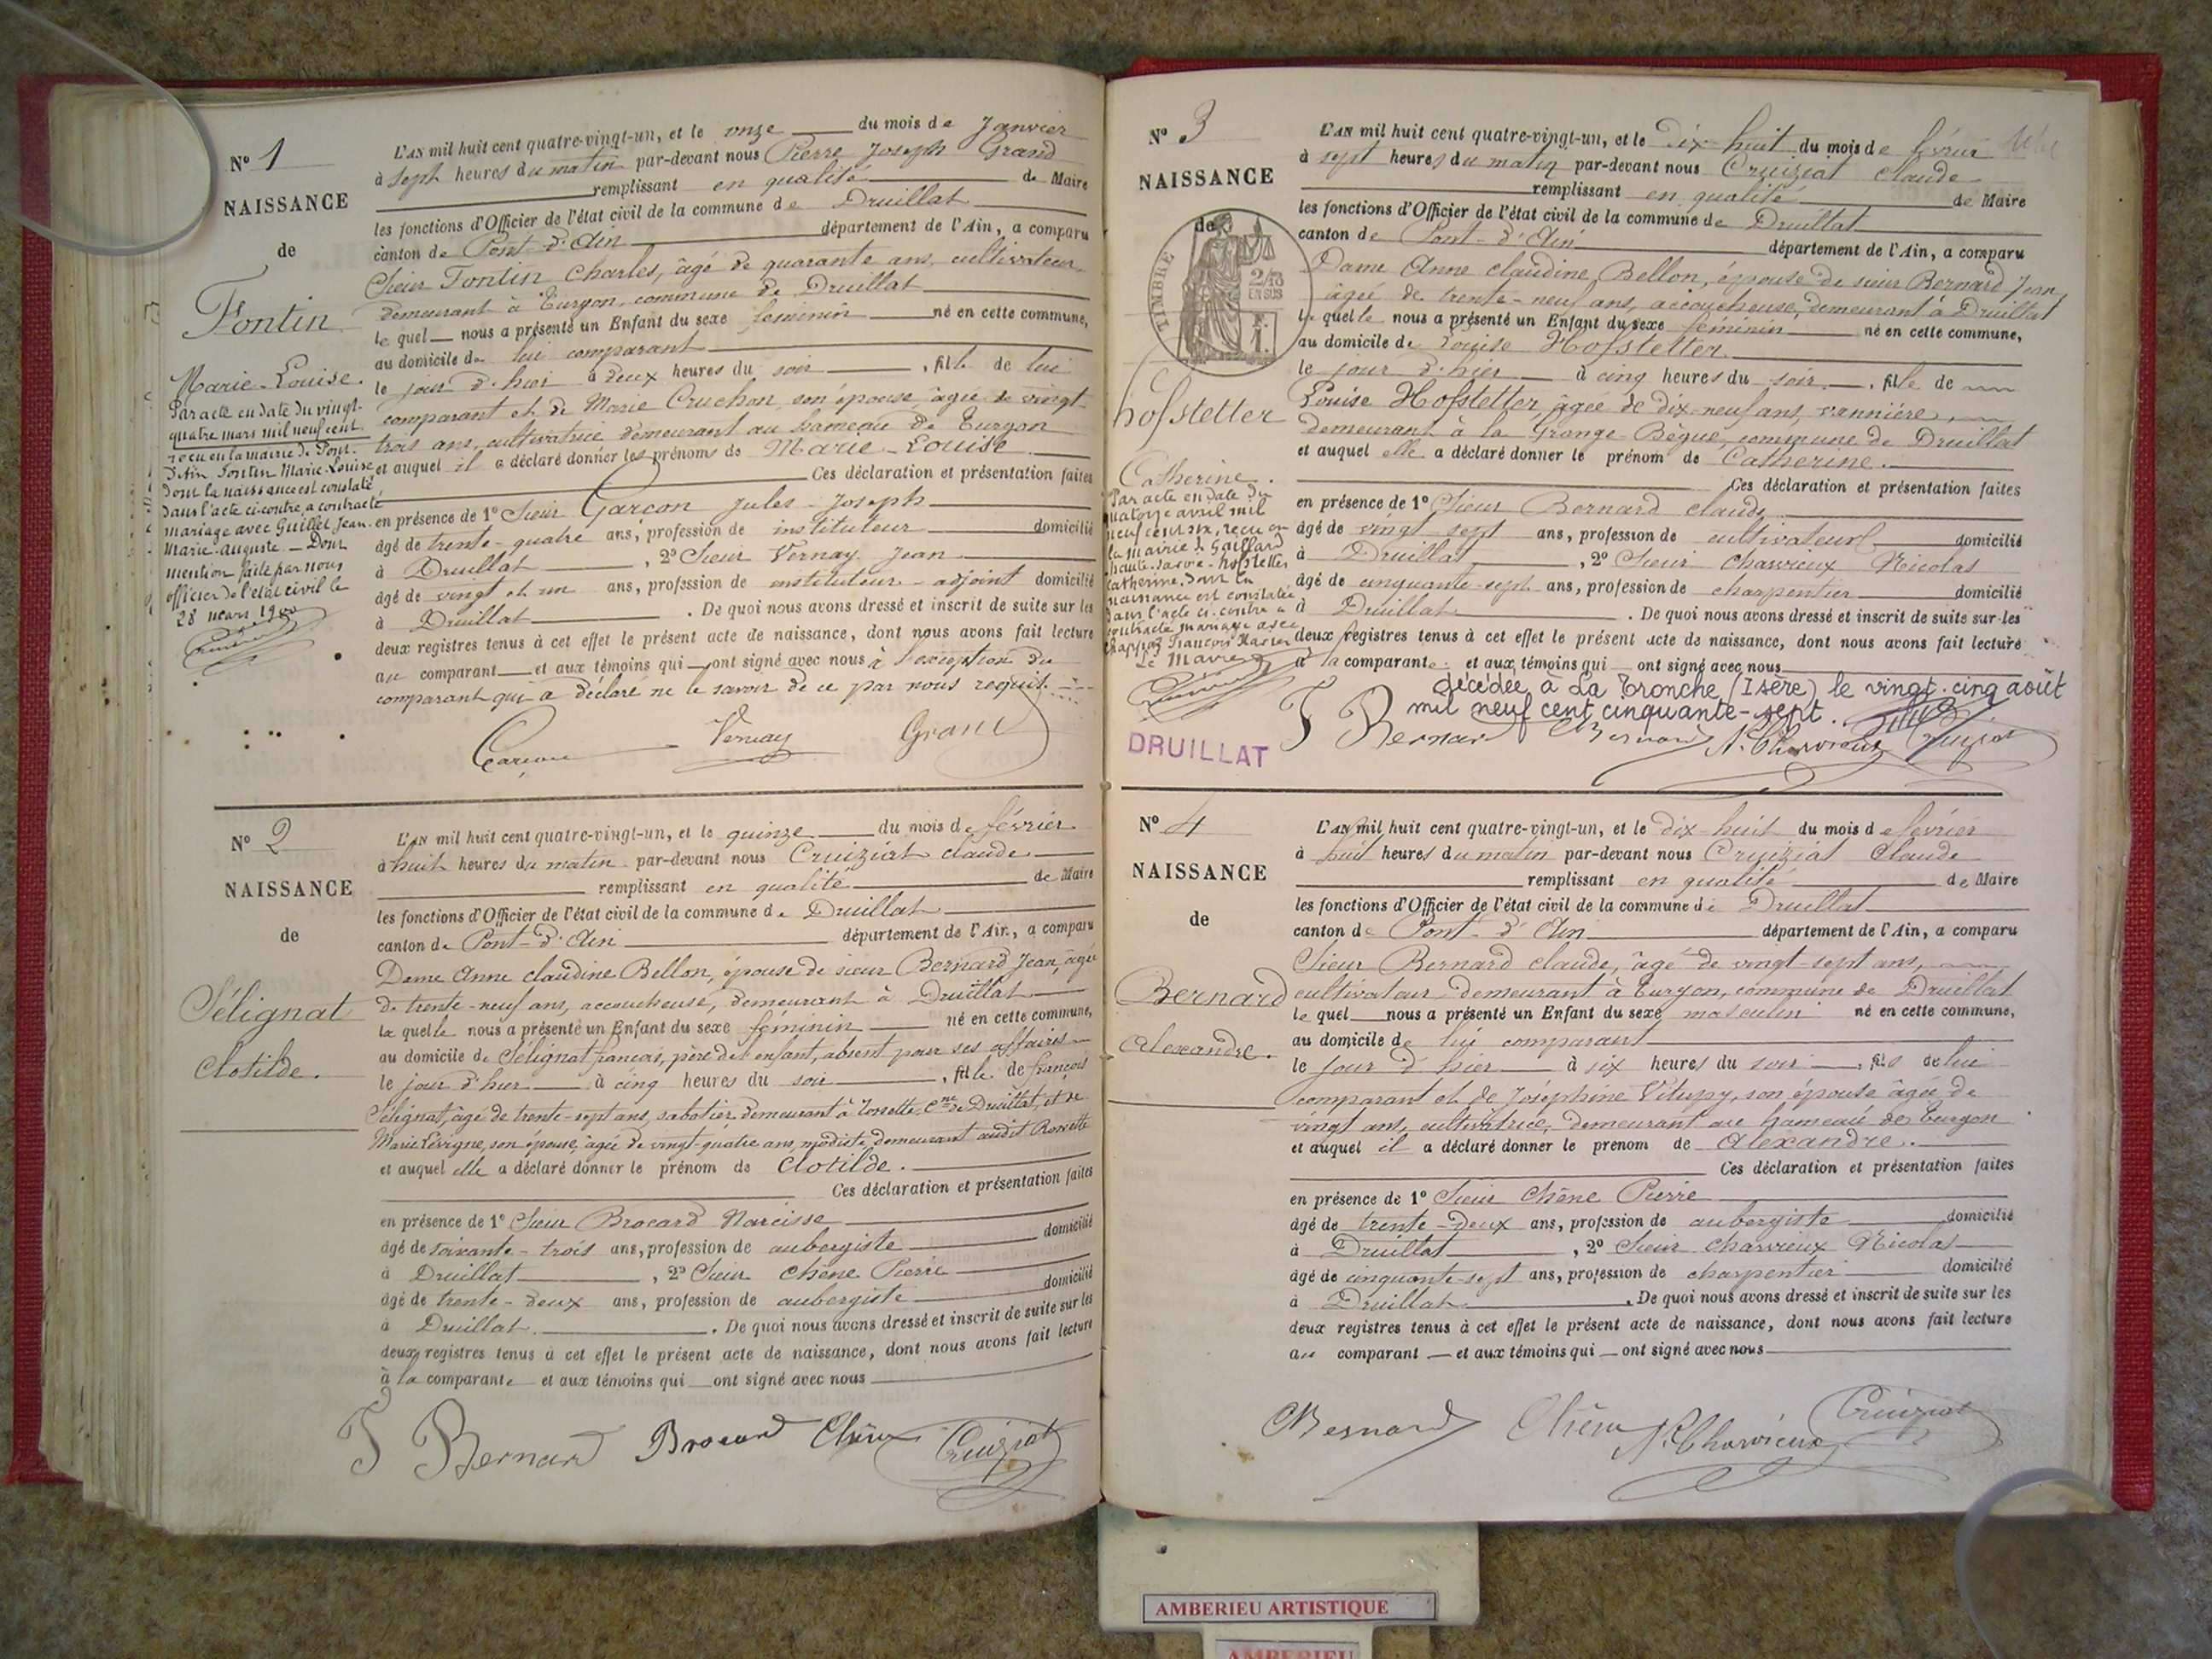 N° 1
NAISSANCE
de
Fontin
Marie-Louise.
Par acte en date du vingt-
quatre mars mil neuf cent
reçu en la mairie de Pont-
d'Ain Fontin Marie-Louise
dont la naissance est constatée
dans l'acte ci-contre, a contracté
mariage avec Guillet Jean-
Marie-Auguste — Dont
mention faite par nous
officier de l'état civil le
28 mars 1900
L'AN mil huit cent quatre-vingt-un, et le onze du mois de Janvier
à Sept heures du matin par-devant nous Pierre Joseph Grand
remplissant en qualité de Maire
les fonctions d'Officier de l'état civil de la commune de Druillat
canton de Pont-d'Ain département de l'Ain, a comparu
Sieur Fontin Charles, âgé de quarante ans, cultivateur,
demeurant à Turgon, commune de Druillat
le quel nous a présenté un Enfant du sexe féminin né en cette commune,
au domicile de lui comparant
le jour d'hier à deux heures du soir, fille de lui
comparant et de Marie Cruchon, son épouse, âgée de vingt-
trois ans, cultivatrice demeurant au hameau de Turgon
et auquel il a déclaré donner les prénoms de Marie-Louise
Ces déclaration et présentation faites
en présence de 1° Sieur Garçon Jules-Joseph
âgé de trente-quatre ans, profession de instituteur domicilié
à Druillat, 2° Sieur Vernay Jean
âgé de vingt et un ans, profession de instituteur-adjoint domicilié
à Druillat. De quoi nous avons dressé et inscrit de suite sur les
deux registres tenus à cet effet le présent acte de naissance, dont nous avons fait lecture
au comparant et aux témoins qui ont signé avec nous à l'exception du
comparant qui a déclaré ne le savoir de ce par nous requis.
Garçon Vernay Grand
N° 2
NAISSANCE
de
Sélignat
Clotilde.
L'AN mil huit cent quatre-vingt-un, et le quinze du mois de février
à huit heures du matin par-devant nous Cruiziat Claude
remplissant en qualité de Maire
les fonctions d'Officier de l'état civil de la commune de Druillat
canton de Pont-d'Ain département de l'Ain, a comparu
Dame Anne Claudine Bellon, épouse de sieur Bernard Jean, âgée
de trente-neuf ans, accoucheuse, demeurant à Druillat
la quelle nous a présenté un Enfant du sexe féminin né en cette commune,
au domicile de Sélignat françois, père de l'enfant, absent pour ses affaires
le jour d'hier à cinq heures du soir, fille de françois
Sélignat, âgé de trente-sept ans, sabotier, demeurant à Rossette, Cne de Druillat, et de
Marie Lévigne, son épouse, âgée de vingt-quatre ans, modiste, demeurant audit Rossette
et auquel elle a déclaré donner le prénom de Clotilde.
Ces déclaration et présentation faites
en présence de 1° Sieur Brocard Narcisse
âgé de soixante-trois ans, profession de aubergiste domicilié
à Druillat, 2° Sieur Chêne Pierre
âgé de trente-deux ans, profession de aubergiste domicilié
à Druillat. De quoi nous avons dressé et inscrit de suite sur les
deux registres tenus à cet effet le présent acte de naissance, dont nous avons fait lecture
à la comparante et aux témoins qui ont signé avec nous
J Bernard Brocard Chêne Cruiziat
N° 3
NAISSANCE
de
TIMBRE
2/10
EN SUS
hofstetter
Catherine.
Par acte en date du
quatorze avril mil
neuf cent six, reçu en
la mairie de Gaillard
haute-Savoie-hofstetter
Catherine, dont la
naissance est constatée
dans l'acte ci-contre a
contracté mariage avec
Chappaz François Marius
Le Maire
DRUILLAT
L'AN mil huit cent quatre-vingt-un, et le Dix-huit du mois de février
à sept heures du matin par-devant nous Cruiziat Claude
remplissant en qualité de Maire
les fonctions d'Officier de l'état civil de la commune de Druillat
canton de Pont-d'Ain département de l'Ain, a comparu
Dame Anne Claudine Bellon, épouse de sieur Bernard Jean,
âgée de trente-neuf ans, accoucheuse, demeurant à Druillat
la quelle nous a présenté un Enfant du sexe féminin né en cette commune,
au domicile de Louise Hofstetter
le jour d'hier à cinq heures du soir, fille de
Louise Hofstetter, âgée de dix-neuf ans, vannière,
demeurant à la Grange-Bègue, commune de Druillat
et auquel elle a déclaré donner le prénom de Catherine.
Ces déclaration et présentation faites
en présence de 1° Sieur Bernard Claude
âgé de vingt sept ans, profession de cultivateur domicilié
à Druillat, 2° Sieur Charvieux Nicolas
âgé de cinquante-sept ans, profession de charpentier domicilié
à Druillat. De quoi nous avons dressé et inscrit de suite sur les
deux registres tenus à cet effet le présent acte de naissance, dont nous avons fait lecture
à la comparante et aux témoins qui ont signé avec nous
décédée à La Tronche (Isère) le vingt-cinq août
mil neuf cent cinquante-sept.
J Bernard CBernard N. Charvieux Cruiziat
N° 4
NAISSANCE
de
Bernard
Alexandre.
L'AN mil huit cent quatre-vingt-un, et le dix-huit du mois de février
à huit heures du matin par-devant nous Cruiziat Claude
remplissant en qualité de Maire
les fonctions d'Officier de l'état civil de la commune de Druillat
canton de Pont-d'Ain département de l'Ain, a comparu
Sieur Bernard Claude, âgé de vingt-sept ans,
cultivateur demeurant à Turgon, commune de Druillat
le quel nous a présenté un Enfant du sexe masculin né en cette commune,
au domicile de lui comparant
le jour d'hier à six heures du soir, fils de lui
comparant et de Joséphine Vitupy, son épouse âgée de
vingt ans, cultivatrice, demeurant au hameau de Turgon
et auquel il a déclaré donner le prenom de Alexandre.
Ces déclaration et présentation faites
en présence de 1° Sieur Chêne Pierre
âgé de trente-deux ans, profession de aubergiste domicilié
à Druillat, 2° Sieur Charvieux Nicolas
âgé de cinquante-sept ans, profession de charpentier domicilié
à Druillat. De quoi nous avons dressé et inscrit de suite sur les
deux registres tenus à cet effet le présent acte de naissance, dont nous avons fait lecture
au comparant et aux témoins qui ont signé avec nous
CBernard Chêne N. Charvieux Cruiziat
AMBERIEU ARTISTIQUE
AMBERIEU